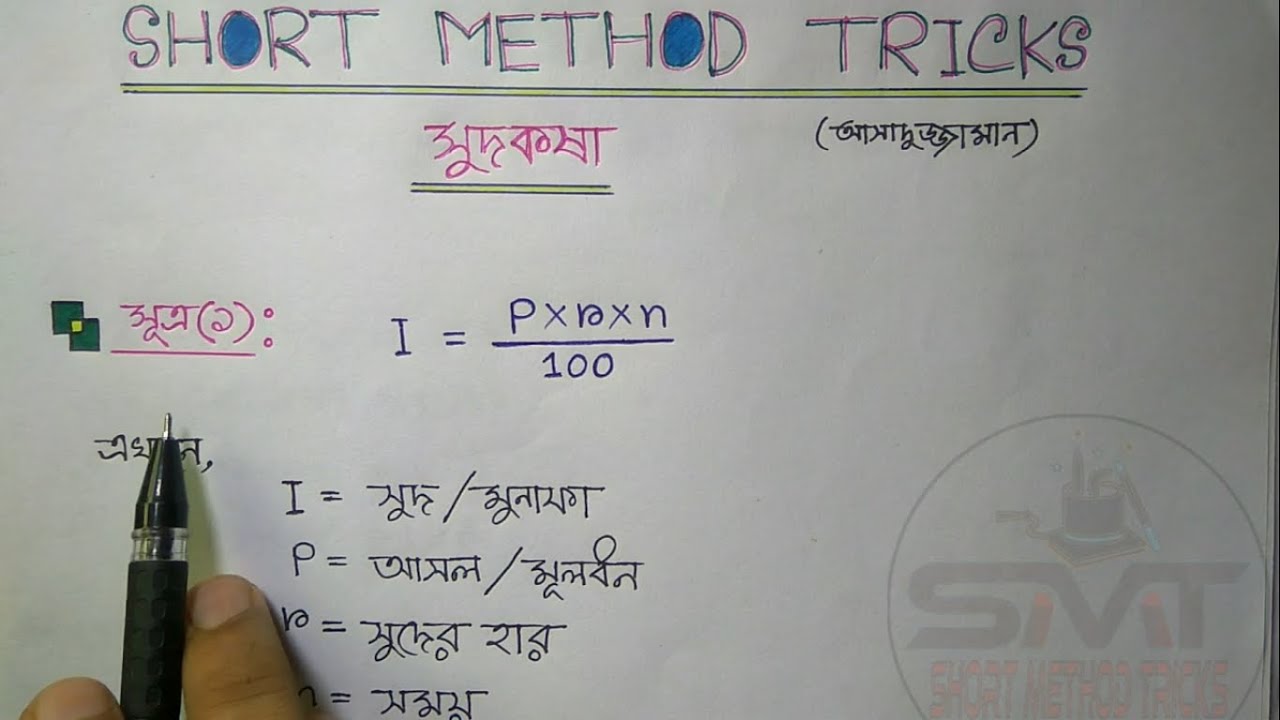 SHORT METHOD TRICKS
সুদকষা
(আসাদুজ্জামান)
সূত্র(১): I = P×r×n
100
এখানে,
I = সুদ/মুনাফা
P = আসল/মূলধন
r = সুদের হার
n = সময়
SMT
SHORT METHOD TRICKS